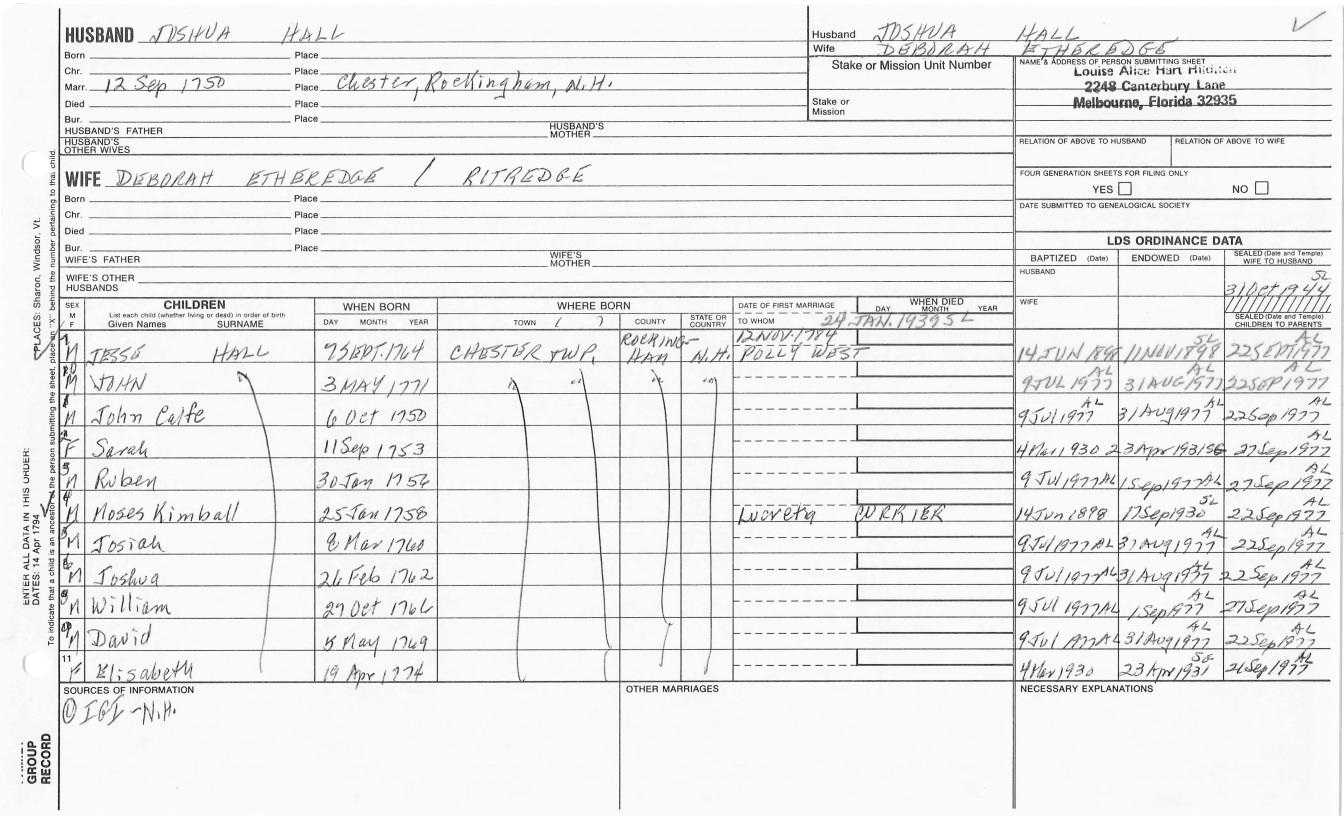 HUSBAND JOSHUA HALL
Born Place
Chr. Place
Marr. 12 Sep 1750 Place Chester, Rockingham, N.H.
Died Place
Bur. Place
HUSBAND'S FATHER HUSBAND'S MOTHER
HUSBAND'S OTHER WIVES
WIFE DEBORAH ETHEREDGE / RITREDGE
Born Place
Chr. Place
Died Place
Bur. Place
WIFE'S FATHER WIFE'S MOTHER
WIFE'S OTHER HUSBANDS
Husband JOSHUA HALL
Wife DEBORAH ETHEREDGE
Stake or Mission Unit Number
Stake or Mission
NAME & ADDRESS OF PERSON SUBMITTING SHEET
Louise Alice Hart
2248 Canterbury Lane
Melbourne, Florida 32935
RELATION OF ABOVE TO HUSBAND RELATION OF ABOVE TO WIFE
FOUR GENERATION SHEETS FOR FILING ONLY
YES NO
DATE SUBMITTED TO GENEALOGICAL SOCIETY
LDS ORDINANCE DATA
BAPTIZED (Date) ENDOWED (Date) SEALED (Date and Temple) WIFE TO HUSBAND
HUSBAND SL
31 Oct 1944
WIFE
SEALED (Date and Temple) CHILDREN TO PARENTS
SEX M F CHILDREN WHEN BORN WHERE BORN DATE OF FIRST MARRIAGE WHEN DIED
List each child (whether living or dead) in order of birth
Given Names SURNAME DAY MONTH YEAR TOWN COUNTY STATE OR COUNTRY TO WHOM DAY MONTH YEAR
24 JAN. 1939 SL
7 M JESSE HALL 9 SEPT. 1764 CHESTER TWP. ROCKING-HAM N.H. 12 NOV. 1784 POLLY WEST 14 JUN 1898 11 NOV. 1898 SL 22 SEPT 1977 AL
10 M JOHN 3 MAY 1771 " " " " 9 JUL 1977 AL 31 AUG 1977 AL 22 SEP 1977 AL
1 M John Calfe 6 Oct 1750 9 Jul 1977 AL 31 Aug 1977 AL 22 Sep 1977 AL
2 F Sarah 11 Sep 1753 4 Mar 1930 23 Apr 1931 SG 27 Sep 1977 AL
3 M Ruben 30 Jan 1756 9 Jul 1977 AL 1 Sep 1977 AL 27 Sep 1977 AL
4 M Moses Kimball 25 Jan 1758 Lucreta CURRIER 14 Jun 1898 17 Sep 1930 SL 22 Sep 1977 AL
5 M Josiah 8 Mar 1760 9 Jul 1977 AL 31 Aug 1977 AL 22 Sep 1977 AL
6 M Joshua 26 Feb 1762 9 Jul 1977 AL 31 Aug 1977 AL 22 Sep 1977 AL
8 M William 29 Oct 1766 9 Jul 1977 AL 1 Sep 1977 AL 27 Sep 1977 AL
M David 5 May 1769 9 Jul 1977 AL 31 Aug 1977 AL 22 Sep 1977 AL
11 F Elisabeth 19 Apr 1774 4 Mar 1930 23 Apr 1931 SG 21 Sep 1977 AL
SOURCES OF INFORMATION OTHER MARRIAGES NECESSARY EXPLANATIONS
① IGI - N.H.
PLACES: Sharon, Windsor, Vt.
ENTER ALL DATA IN THIS ORDER:
DATES: 14 Apr 1794
To indicate that a child is an ancestor of the person submitting the sheet, place an "X" behind the number pertaining to that child.
GROUP
RECORD